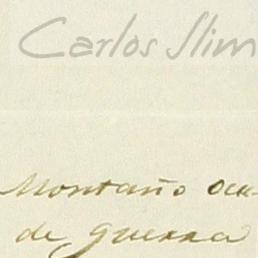 Carlos Slim
Montaño ocu-
de guerra